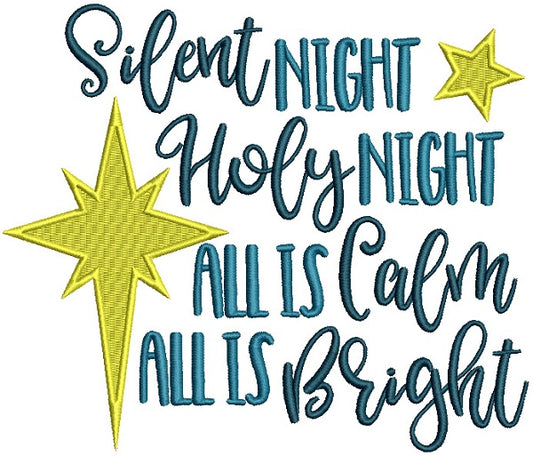 Silent NIGHT
Holy NIGHT
ALL IS Calm
ALL IS Bright